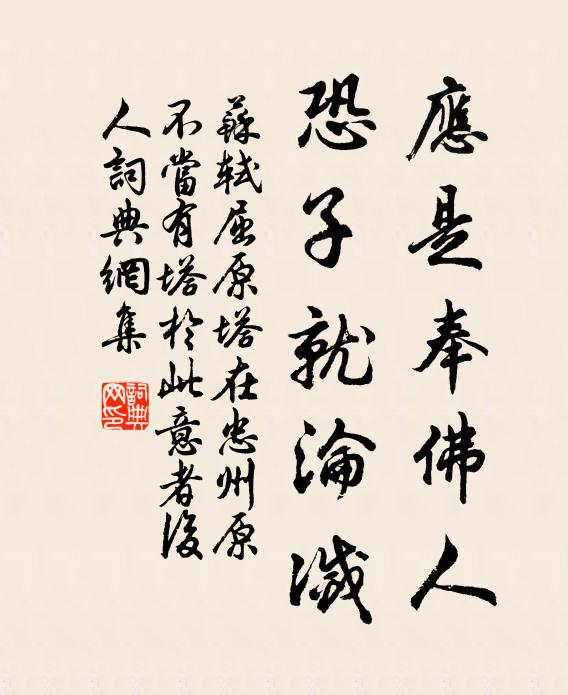 應是奉佛人
恐子就淪滅
蘇軾屈原塔在忠州原
不當有塔於此意者後
人詞典網集
詞典
网印